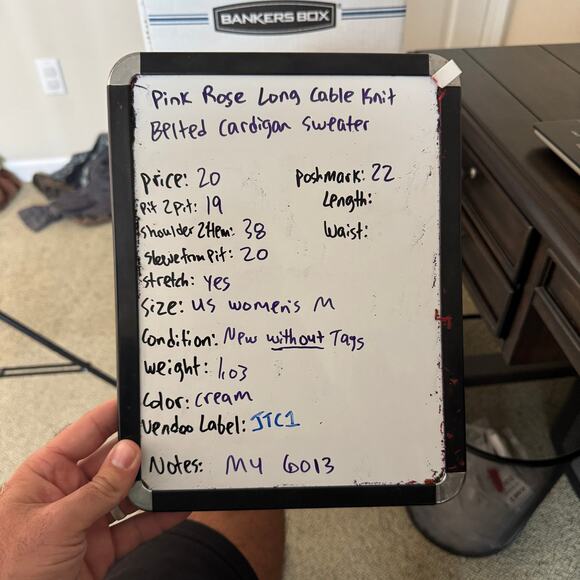 BANKERS BOX
Pink Rose Long Cable Knit
Belted Cardigan Sweater
Price: 20
Poshmark: 22
Pit 2 Pit: 19
Length:
Shoulder 2 Hem: 38
Waist:
Sleeve from Pit: 20
Stretch: yes
Size: US women's M
Condition: New without Tags
Weight: 1.03
Color: cream
Vendoo Label: JTC1
Notes: MY 6013